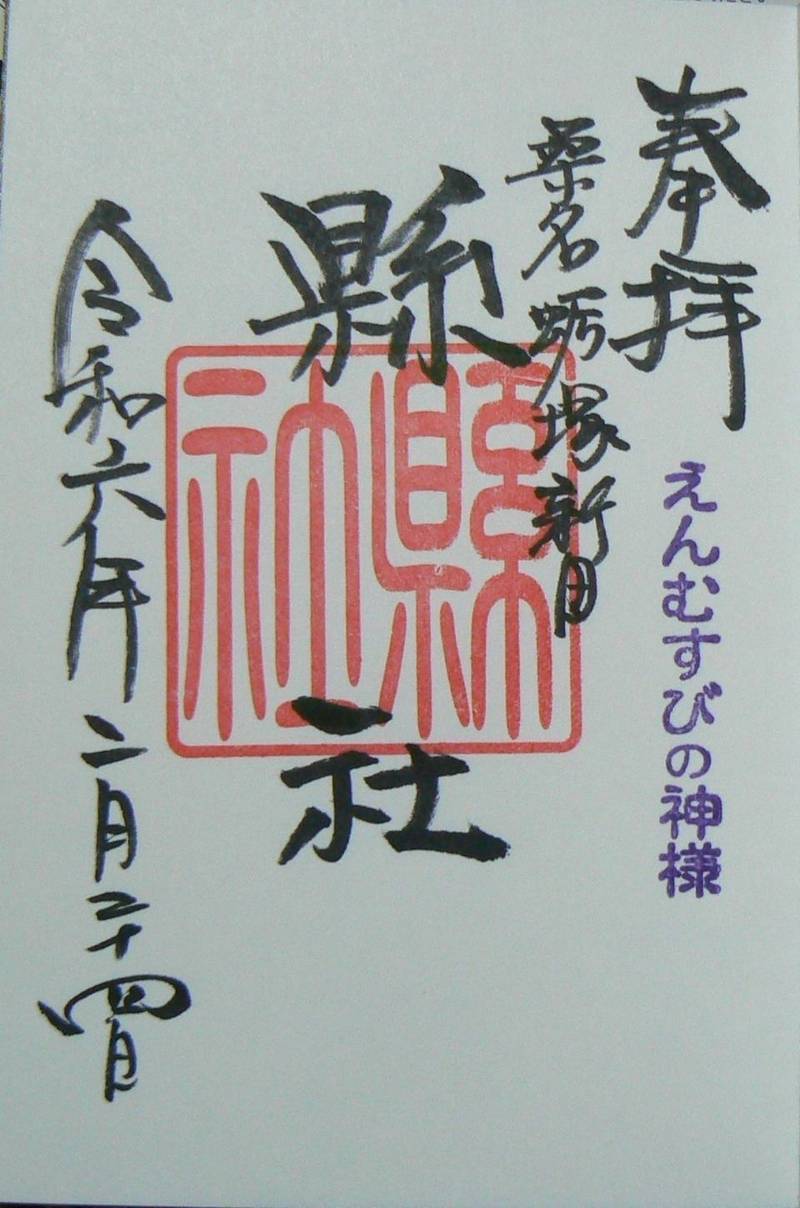 奉拝
えんむすびの神様
桑名蛎塚新田
縣社
縣社
令和六年二月二十四日